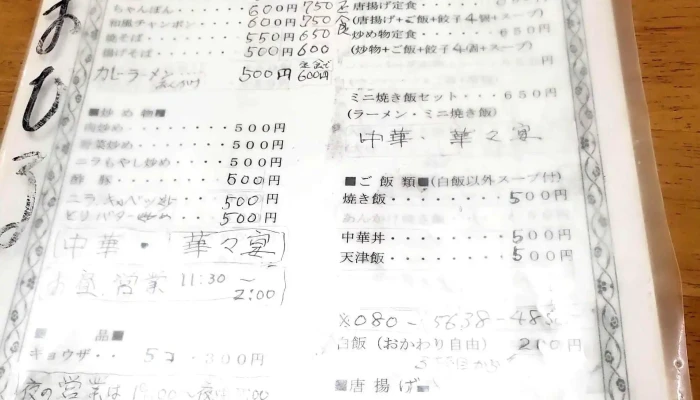 おひる
ちゃんぽん・・・・・・・600円 750
和風チャンポン・・・・600円 750
焼そば・・・・・・・・・550円 650
揚げそば・・・・・・・500円 600
カレーラーメン 500円 600円
■炒め物■
肉炒め・・・・・・・・500円
野菜炒め・・・・・・・500円
ニラもやし炒め・・・・500円
酢 豚・・・・・・・・600円
ニラキャベツ炒 500円
とりバター炒め 500円
中華・華々宴
お昼営業 11:30〜
2:00
品■
ギョウザ・・ 5コ・300円
夜の営業は
唐揚げ定食・・・・
(唐揚げ+ご飯+餃子4個+スープ)
炒め物定食・・・・
(炒物+ご飯+餃子4個+スープ)
円
ミニ焼き飯セット・・・650円
(ラーメン・ミニ焼き飯)
中華・華々宴
■ご飯類■(白飯以外スープ付)
焼き飯・・・・・・・・500円
中華丼・・・・・・・・500円
天津飯・・・・・・・・500円
※080〜5638-48
白飯(おかわり自由) 200円
■唐揚げ■